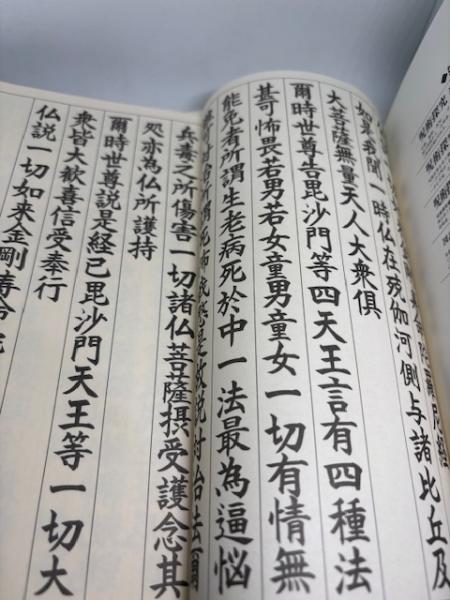 呪術探究
羅尼経
如是我聞一時仏在殑伽河側与諸比丘及
大菩薩無量天人大衆俱
爾時世尊告毘沙門等四天王言有四種法
甚可怖畏若男若女童男童女一切有情無
能免者所謂生老病死於中一法最為逼悩
可対治所謂死怖我愍是故説対治法爾
兵毒之所傷害一切諸仏菩薩摂受護念其
処亦為仏所護持
爾時世尊説是経已毘沙門天王等一切大
衆皆大歓喜信受奉行
仏説一切如来金剛寿命